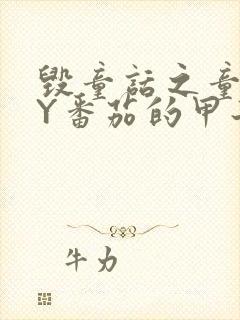 毁童话之童
Y番茄的甲
牛力